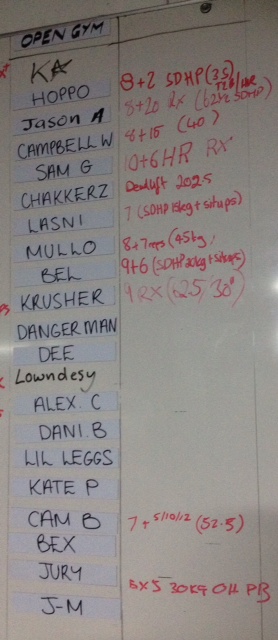 OPEN GYM
KA
HOPPO 8+2 SDHP (35)
Jason A 8+20 Rx (62kg SDHP)
CAMPBELL W 8+15 (40)
SAM G 10+6HR RX
CHAKKERZ Deadlift 2025
LASNI 7 (SDHP 15kg + situps)
MULLO 8+7 reps (45kg,
BEL 9+6 (SDHP 20kg + situps)
KRUSHER 9 RX (62.5/30")
DANGERMAN
DEE
Lowndesy
ALEX. C
DANI. B
LIL LEGGS
KATE P
CAM B 7 + 5/10/12 (52.5)
BEX
JURY
J-M 5x5 30KG OH PB